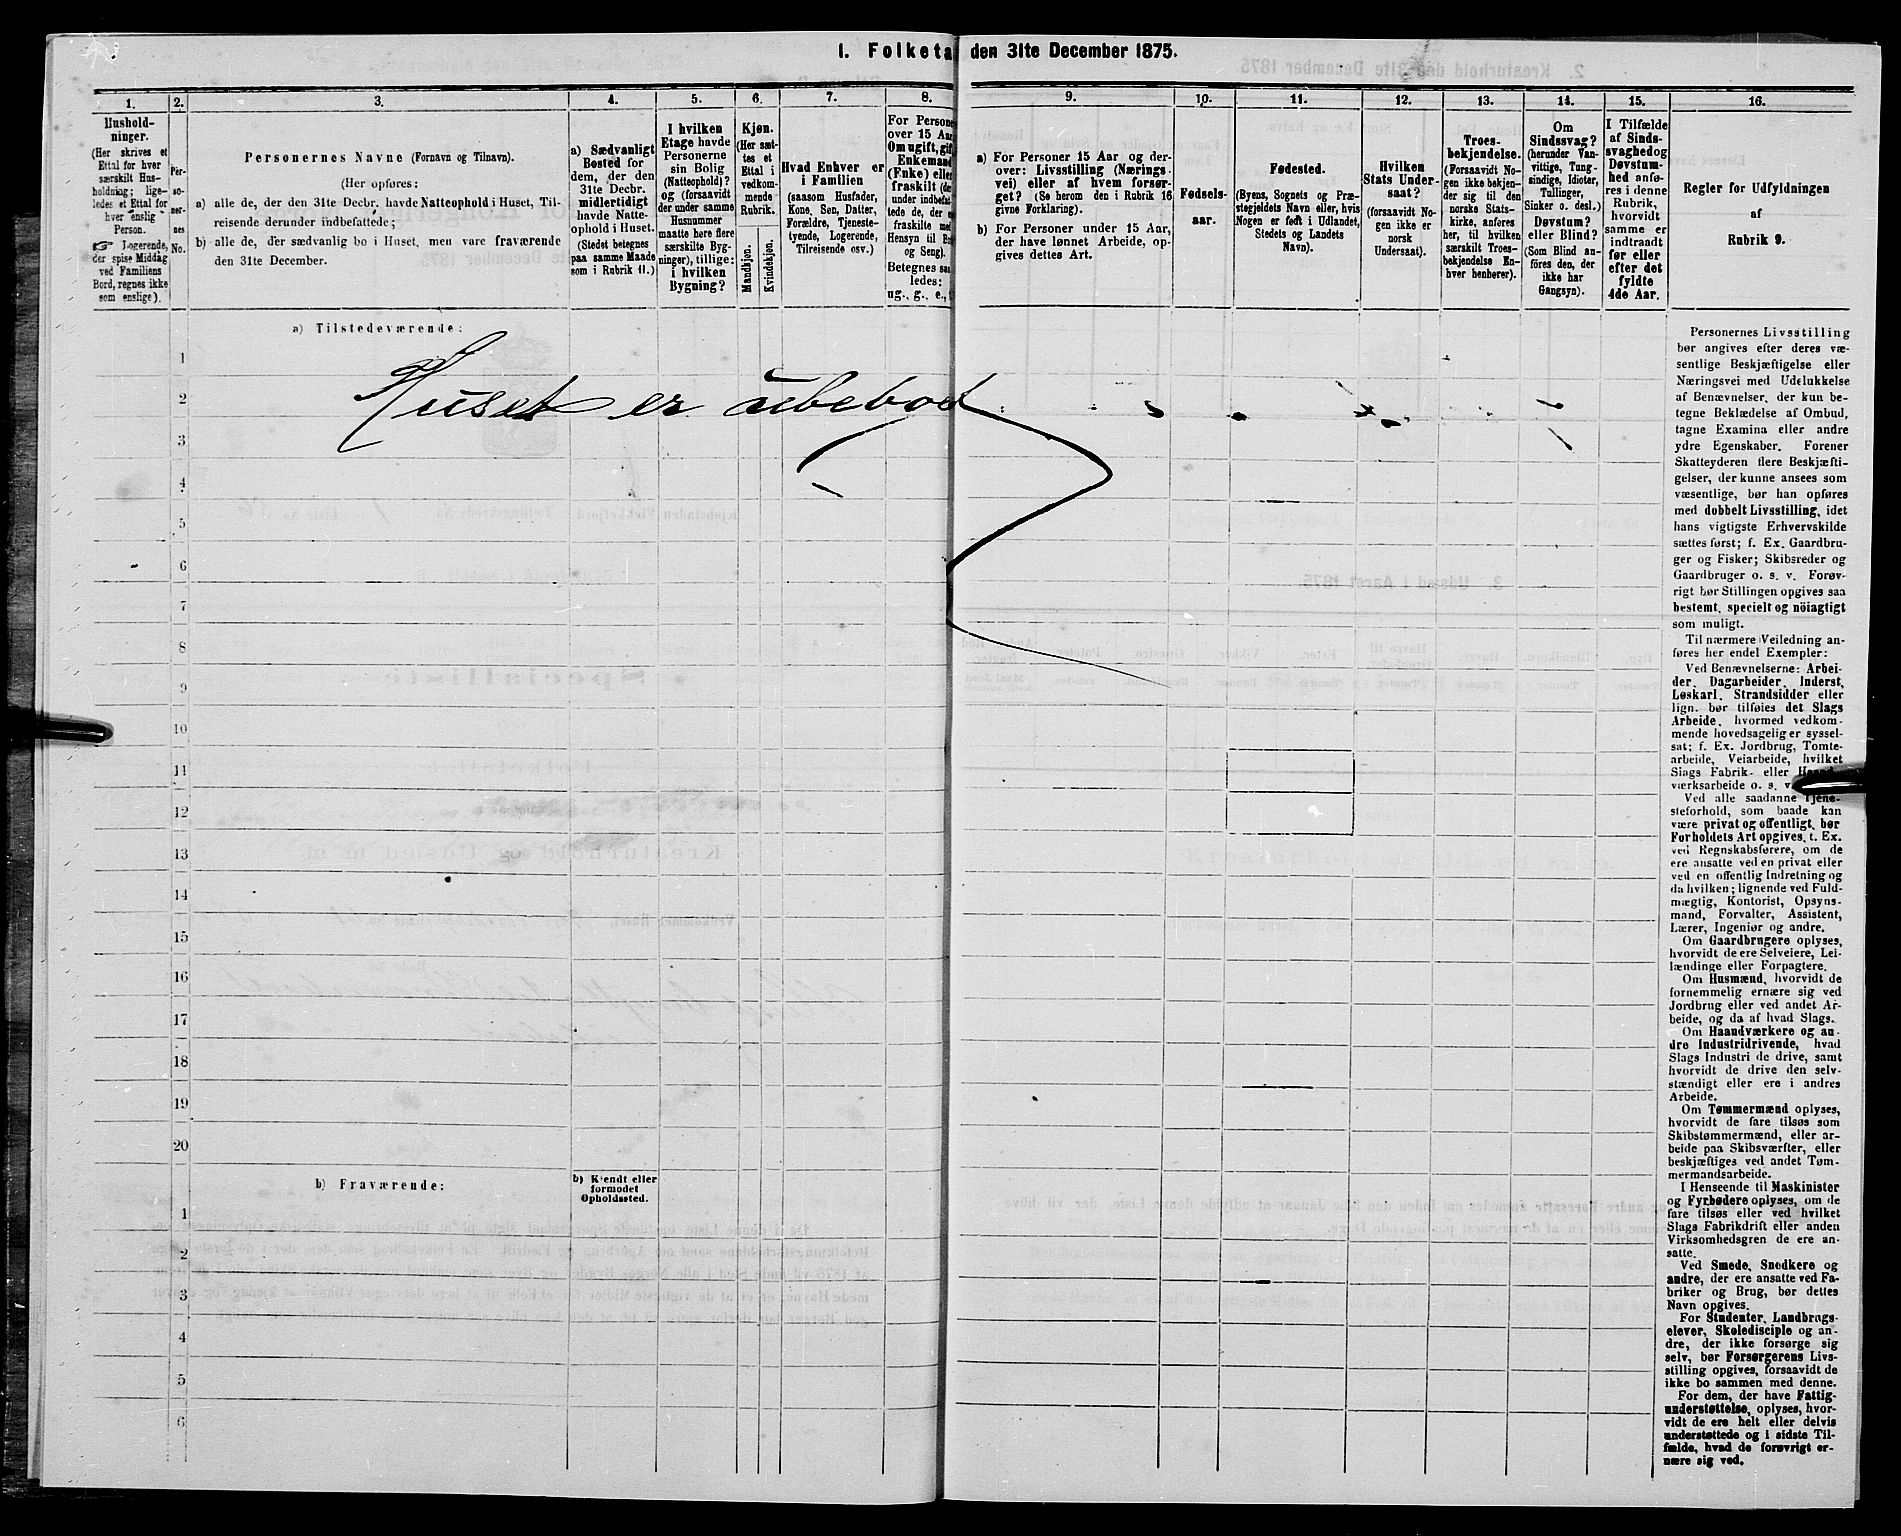 1. Folketa den 31te December 1875.
1.
2.
3.
4.
5.
6.
7.
8.
9.
10.
11.
12.
13.
14.
15.
16.
Hushold-
ninger.
(Her skrives et
Ettal for hver
særskilt Hus-
holdning; lige-
ledes et Ettal for
hver enslig
Person.
Logerende,
der spise Middag
ved Familiens
Bord, regnes ikke
som enslige).
Per-
so-
ner-
nes
No.
Personernes Navne (Fornavn og Tilnavn).
(Her opføres:
a) alle de, der den 31te Decbr. havde Natteophold i Huset, Til-
reisende derunder indbefattede;
b) alle de, der sædvanlig bo i Huset, men vare fraværende
den 31te December.
a) Sædvanligt
Bosted for
dem, der den
31te Decbr.
midlertidigt
havde Natte-
ophold i Huset.
(Stedet betegnes
paa samme Maade
som i Rubrik 11.)
I hvilken
Etage havde
Personerne
sin Bolig
(Natteophold)?
(forsaavidt
der under samme
Husnummer
maatte høre flere
særskilte Byg-
ninger), tillige:
i hvilken
Bygning?
Kjøn.
(Her sæt-
tes et
Ettal i
vedkom-
mende
Rubrik.
Mandkjøn.
Kvindekjøn.
Hvad Enhver er
i Familien
(saasom Husfader,
Kone, Søn, Datter,
Forældre, Tjeneste-
tyende, Logerende,
Tilreisende osv.)
For Persone
over 15 Aar
Om ugift, gif
Enkemand
(Enke) elle
fraskilt (de
under indbefat
tede de, der e
fraskilte me
Hensyn til B
og Seng).
Betegnes saa
ledes:
ug., g., e.,
a) For Personer 15 Aar og der-
over: Livsstilling (Nærings-
vei) eller af hvem forsør-
get? (Se herom den i Rubrik 16
givne Forklaring).
b) For Personer under 15 Aar,
der have lønnet Arbeide, op-
gives dettes Art.
Fødsels-
aar.
Fødested.
(Byens, Sognets og Præ-
stegjeldets Navn eller, hvis
Nogen er født i Udlandet,
Stedets og Landets
Navn).
Hvilken
Stats Under-
saat?
(forsaavidt No-
gen ikke er
norsk
Undersaat).
Troes-
bekjendelse.
(Forsaavidt No-
gen ikke bekjen-
der sig til den
norske Stats-
kirke, anføres
her, til hvilken
særskilt Troes-
bekjendelse En-
hver henhører).
Om
Sindssvag?
(herunder Van-
vittige, Tung-
sindige, Idioter,
Tullinger,
Sinker o. desl.)
Døvstum?
eller Blind?
(Som Blind an-
føres den, der
ikke har
Gangsyn).
I Tilfælde
af Sinds-
svaghed og
Døvstum-
hed anfø-
res i denne
Rubrik,
hvorvidt
samme er
indtraadt
før eller
efter det
fyldte
4de Aar.
Regler for Udfyldningen
af
Rubrik 9.
a) Tilstedeværende:
1
2
3
4
5
6
7
8
9
10
11
12
13
14
15
16
17
18
19
20
Huset er ubebod
b) Fraværende:
b) Kjendt eller
formodet
Opholdssted.
1
2
3
4
5
6
Personernes Livsstilling
bør angives efter deres væ-
sentlige Beskjæftigelse eller
Næringsvei med Udelukkelse
af Benævnelser, der kun be-
tegne Beklædelse af Ombud,
tagne Examina eller andre
ydre Egenskaber. Forener
Skatteyderen flere Beskjæfti-
gelser, der kunne ansees som
væsentlige, bør han opføres
med dobbelt Livsstilling, idet
hans vigtigste Erhvervskilde
sættes først; f. Ex. Gaardbru-
ger og Fisker; Skibsreder og
Gaardbruger o. s. v. Forøv-
rigt bør Stillingen opgives saa
bestemt, specielt og nöiagtigt
som muligt.
Til nærmere Veiledning an-
føres her endel Exempler:
Ved Benævnelserne: Arbei-
der, Dagarbeider, Inderst,
Løskarl, Strandsidder eller
lign. bør tilføies det Slags
Arbeide, hvormed vedkom-
mende hovedsagelig er syssel-
sat; f. Ex. Jordbrug, Tomte-
arbeide, Veiarbeide, hvilket
Slags Fabrik- eller
værksarbeide o. s. v.
Ved alle saadanne Tjene-
steforhold, som baade kan
være privat og offentligt, bør
Forholdets Art opgives, t. Ex.
ved Regnskabsførere, om de
ere ansatte ved en privat eller
ved en offentlig Indretning og
da hvilken; lignende ved Fuld-
mægtig, Kontorist, Opsyns-
mand, Forvalter, Assistent,
Lærer, Ingeniør og andre.
Om Gaardbrugere oplyses,
hvorvidt de ere Selveiere, Lei-
lændinge eller Forpagtere.
Om Husmænd, hvorvidt de
fornemmelig ernære sig ved
Jordbrug eller ved andet Ar-
beide, og da af hvad Slags.
Om Haandværkere og an-
dre Industridrivende, hvad
Slags Industri de drive, samt
hvorvidt de drive den selv-
stændigt eller ere i andres
Arbeide.
Om Tømmermænd oplyses,
hvorvidt de fare tilsøs som
Skibstømmermænd, eller ar-
beide paa Skibsværfter, eller
beskjæftiges ved andet Tøm-
mermandsarbeide.
I Henseende til Maskinister
og Fyrbødere oplyses, om de
fare tilsøs eller ved hvilket
Slags Fabrikdrift eller anden
Virksomhedsgren de ere an-
satte.
Ved Smede, Snedkere og
andre, der ere ansatte ved Fa-
briker og Brug, bør dettes
Navn opgives.
For Studenter, Landbrugs-
elever, Skoledisciple og an-
dre, der ikke forsørge sig
selv, bør Forsørgerens Livs-
stilling opgives, forsaavidt de
ikke bo sammen med denne.
For dem, der have Fattig-
understøttelse, oplyses, hvor-
vidt de ere helt eller delvis
understøttede og i sidste Til-
fælde, hvad de forøvrigt er-
nære sig ved.